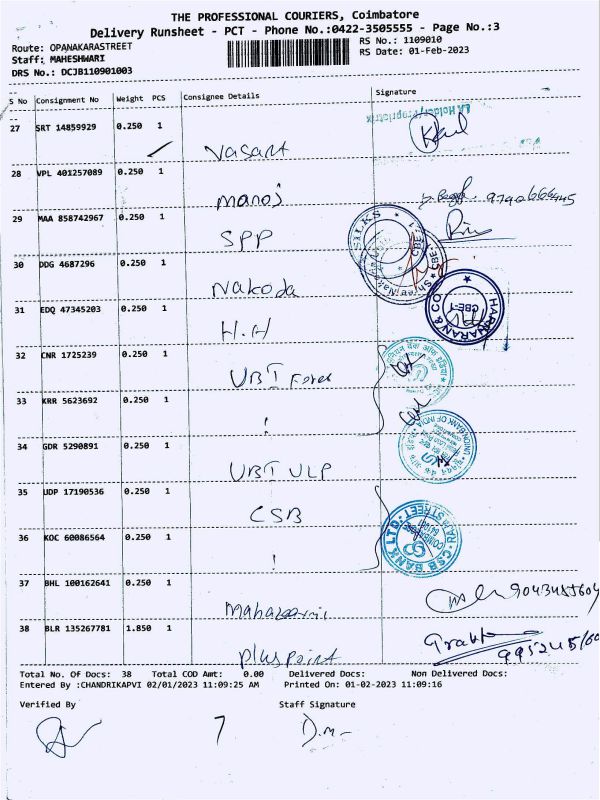 THE PROFESSIONAL COURIERS, Coimbatore
Delivery Runsheet - PCT - Phone No.:0422-3505555 - Page No.:3
Route: OPANAKARASTREET
RS No.: 1109010
Staff: MAHESHWARI
RS Date: 01-Feb-2023
DRS No.: DCJB110901003
S No Consignment No Weight PCS Consignee Details Signature
27 SRT 14859929 0.250 1
Vasant
28 VPL 401257089 0.250 1
Manoj
29 MAA 858742967 0.250 1
SPP
SILKS
CBE-1
30 DDG 4687296 0.250 1
Nakoda
31 EDQ 47345203 0.250 1
H.H
HARINARAN & CO
CBE-1
32 CNR 1725239 0.250 1
UBI Forex
33 KRR 5623692 0.250 1
!
34 GDR 5290891 0.250 1
UBI ULP
UNION BANK OF INDIA
35 UDP 17190536 0.250 1
CSB
CSB BANK LTD. RAJA STREET
36 KOC 60086564 0.250 1
!
37 BHL 100162641 0.250 1
38 BLR 135267781 1.850 1
pluspoint
Total No. Of Docs: 38 Total COD Amt: 0.00 Delivered Docs: Non Delivered Docs:
Entered By :CHANDRIKAPVI 02/01/2023 11:09:25 AM Printed On: 01-02-2023 11:09:16
Verified By Staff Signature
7 D.M-